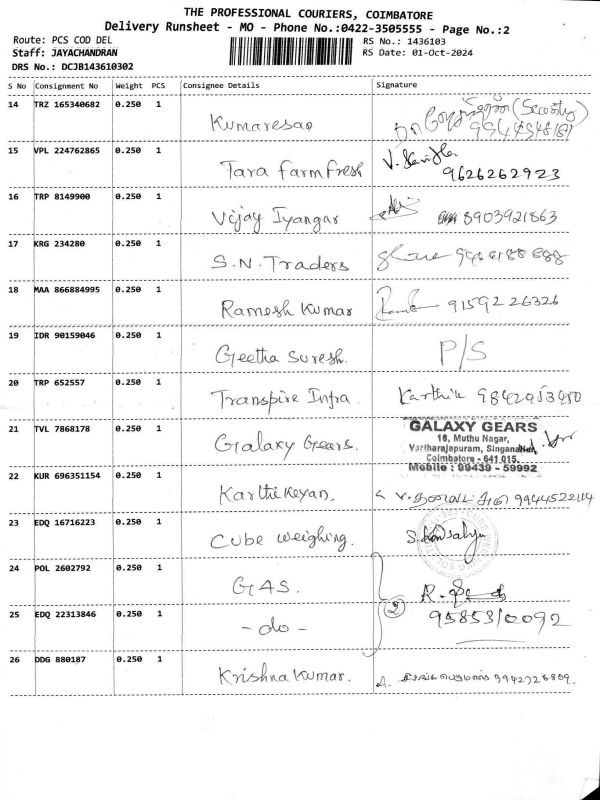 THE PROFESSIONAL COURIERS, COIMBATORE
Delivery Runsheet - MO - Phone No.:0422-3505555 - Page No.:2
Route: PCS COD DEL RS No.: 1436103
Staff: JAYACHANDRAN RS Date: 01-Oct-2024
DRS No.: DCJB143610302
S No Consignment No Weight PCS Consignee Details Signature
14 TRZ 165340682 0.250 1 Kumaresan (Security)
15 VPL 224762865 0.250 1 Tara Farm Fresh 9626262923
16 TRP 8149900 0.250 1 Vijay Iyangar 8903921863
17 KRG 234280 0.250 1 S.N. Traders
18 MAA 866884995 0.250 1 Ramesh Kumar 9159226326
19 IDR 90159046 0.250 1 Geetha Suresh. P/S
20 TRP 652557 0.250 1 Transpire Infra Karthik
21 TVL 7868178 0.250 1 Galaxy Gears.
GALAXY GEARS
16, Muthu Nagar,
Vartharajapuram,
Coimbatore - 641 015.
Mobile : 99439 - 59992
22 KUR 696351154 0.250 1 Karthikeyan.
23 EDQ 16716223 0.250 1 Cube weighing.
24 POL 2602792 0.250 1 GAS.
25 EDQ 22313846 0.250 1 - do - 2 9585310092
26 DDG 880187 0.250 1 Krishna Kumar.